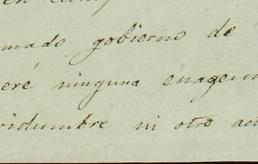 en
mado gobierno de
eré ninguna enagen
vidumbre ni otro